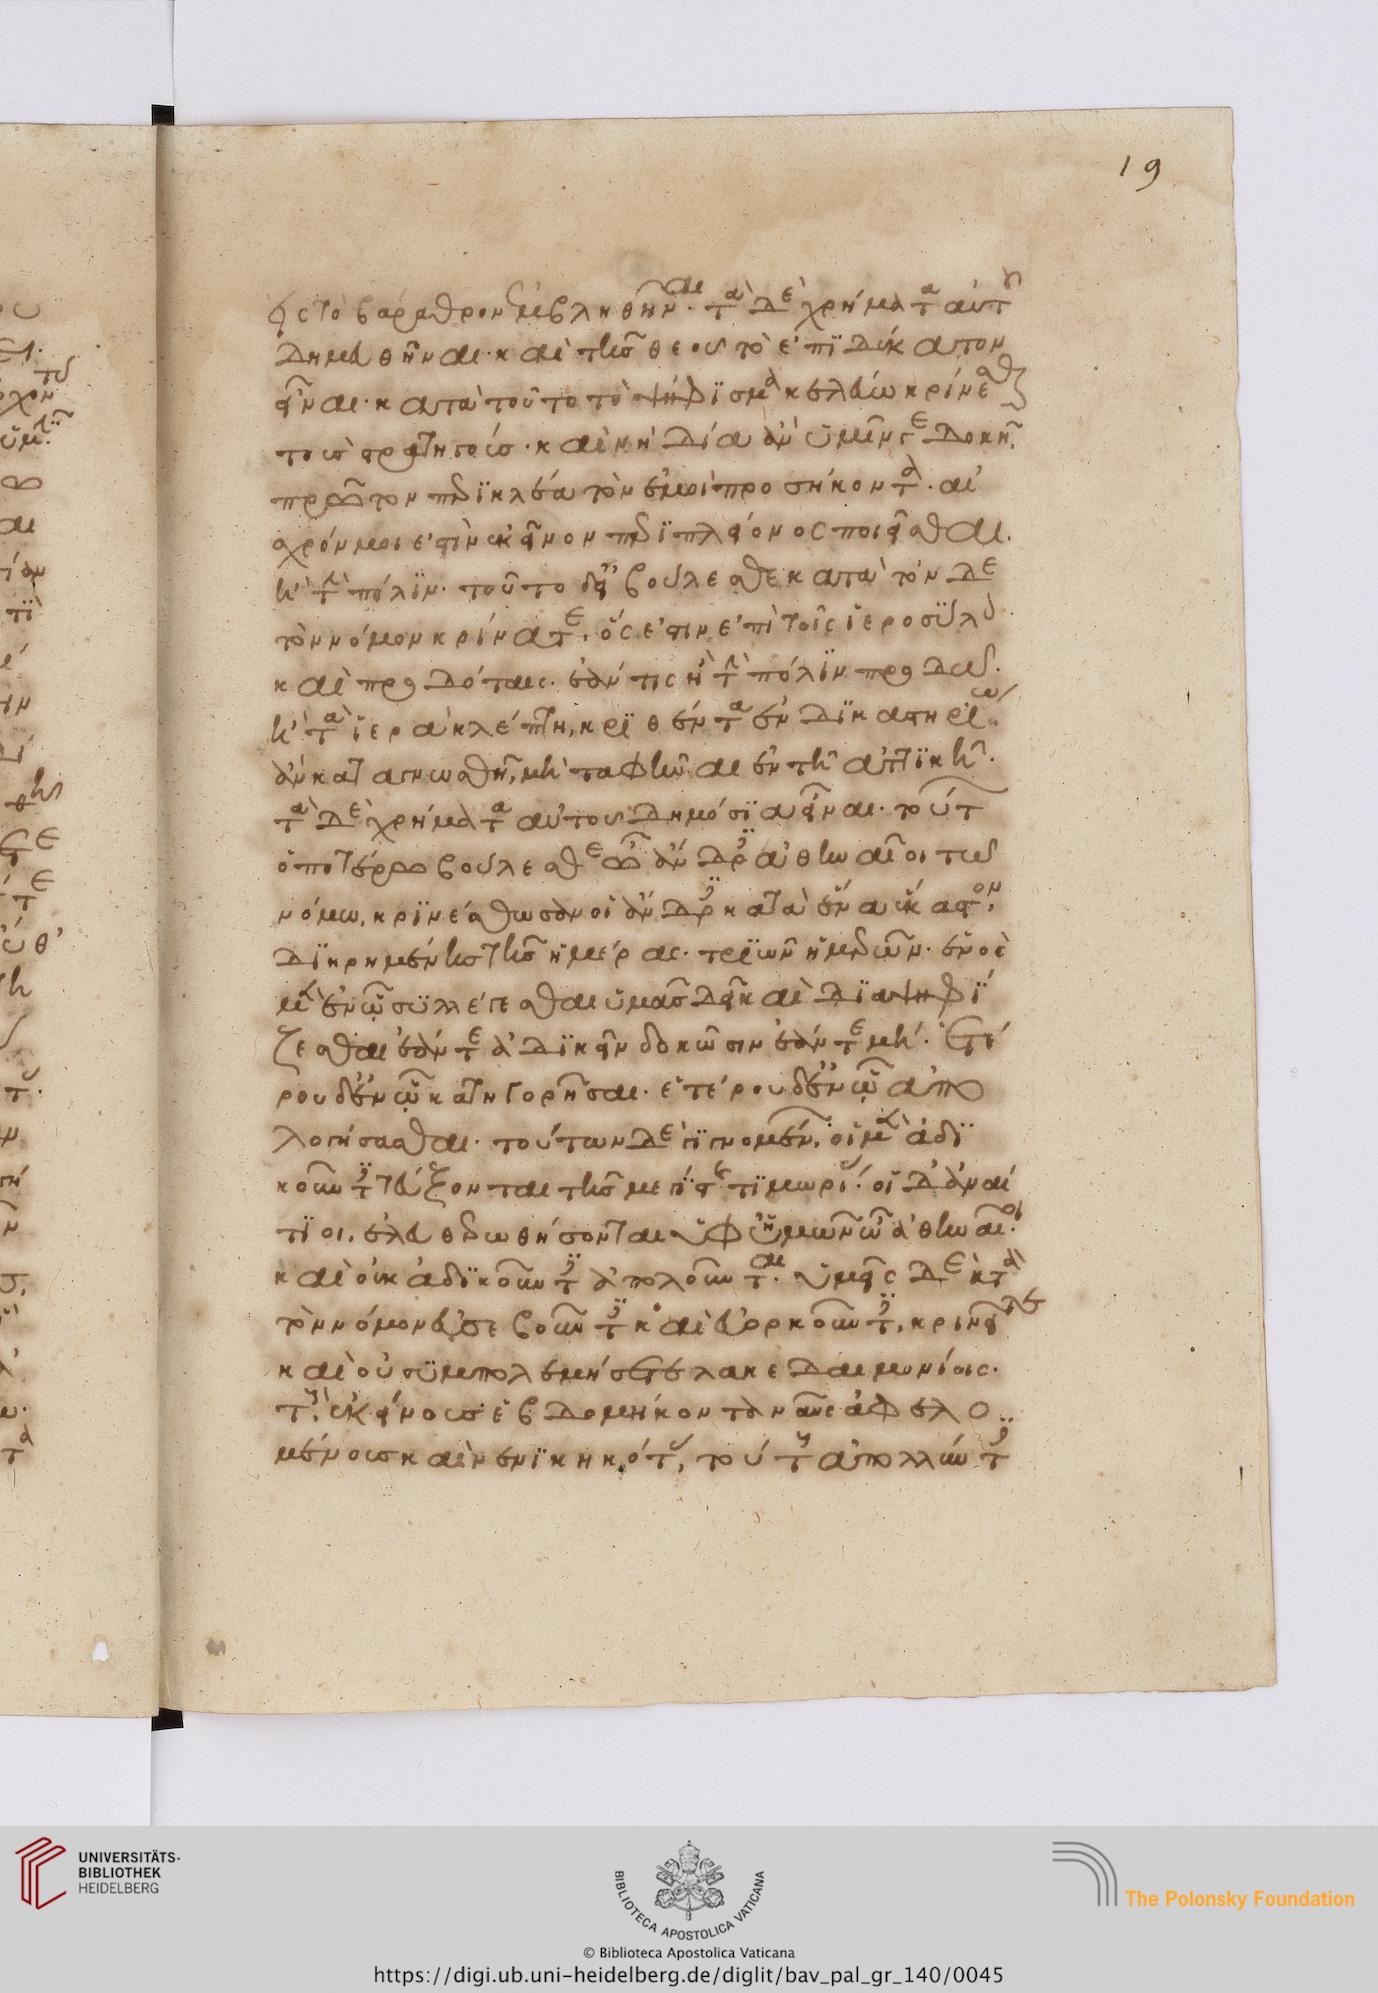 εἰς τὸ βάραθρον ἐμβληθῆναι. τὰ δὲ χρήματα αὐτοῦ
δημευθῆναι. καὶ τῆς θεοῦ τὸ ἐπιδέκατον
εἶναι. κατὰ τοῦτο τὸ ψήφισμα κελεύω κρίνεσθαι
τοὺς στρατηγούς. καὶ νὴ Δία ἂν ὑμῖν γε δοκῇ,
πρῶτον περικλέα τὸν ἐμοὶ προσήκοντα. αἰ
σχρόν μοι ἐστὶν ἐκεῖνον περὶ πλείονος ποιεῖσθαι.
ἢ τὴν πόλιν. τοῦτο δ' εἰ βούλεσθε κατὰ τόνδε
τὸν νόμον κρίνατε, ὅς ἐστιν ἐπὶ τοῖς ἱεροσύλοις
καὶ προδόταις. ἐάν τις ἢ τὴν πόλιν προδῶ.
ἢ τὰ ἱερὰ κλέπτη, κριθέντα ἐν δικαστηρίω.
ἂν καταγνωσθῆ, μὴ ταφῆναι ἐν τῆ ἀττικῆ.
τὰ δὲ χρήματα αὐτοῦ δημόσια εἶναι. τούτων
ὁποτέρω βούλεσθε ὦ ἄνδρες ἀθηναῖοι τῶ
νόμω, κρινέσθωσαν οἱ ἄνδρες κατὰ ἕνα ἕκαστον,
διηρημένης τῆς ἡμέρας. τριῶν ἡμερῶν. ἑνὸς
μὲν ἐν ᾧ συλλέγεσθαι ὑμᾶς δεῖ καὶ διαψηφί
ζεσθαι ἐάν τε ἀδικεῖν δοκῶσιν ἐάν τε μή. ἑτέ
ρου δ' ἐν ᾧ κατηγορῆσαι. ἑτέρου δ' ἐν ᾧ ἀπο
λογήσασθαι. τούτων δὲ γιγνομένων, οἱ μὲν ἀδι
κοῦντες τεύξονται τῆς μεγίστης τιμωρίας. οἱ δ' ἀναί
τιοι, ἐλευθερωθήσονται ὑφ' ὑμῶν ὦ ἀθηναῖοι.
καὶ οὐκ ἀδικοῦντες ἀπολοῦνται. ὑμεῖς δὲ κατὰ
τὸν νόμον εὐσεβοῦντες καὶ εὐορκοῦντες, κρινεῖτε
καὶ οὐ συμπολεμήσετε λακεδαιμονίοις.
τοὺς ἐκείνους ἑβδομήκοντα ναῦς ἀφελο
μένους καὶ νενικηκότας, τούτους ἀπολλύντες
19
UNIVERSITÄTS-
BIBLIOTHEK
HEIDELBERG
BIBLIOTECA APOSTOLICA VATICANA
© Biblioteca Apostolica Vaticana
The Polonsky Foundation
https://digi.ub.uni-heidelberg.de/diglit/bav_pal_gr_140/0045